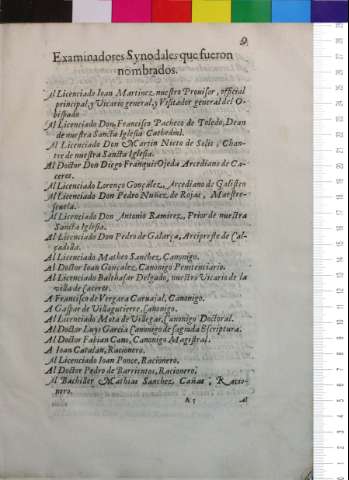 9
Examinadores Synodales que fueron
nombrados.
Al Licenciado Ioan Martinez, nuestro Prouisor, official
principal, y Vicario general, y Visitador general del O-
bispado
Al Licenciado Don Francisco Pacheco de Toledo, Dean
de nuestra Sancta Iglesia Cathedral.
Al Licenciado Don Martin Nieto de Solis, Chan-
tre de nuestra Sancta Iglesia.
Al Doctor Don Diego Franqui Ojeda Arcediano de Ca-
ceres.
Al Licenciado Lorenço Gonçalez, Arcediano de Galisteo
Al Licenciado Don Pedro Nuñez de Rojas, Maestre-
scuela.
Al Licenciado Don Antonio Ramirez, Prior de nuestra
Sancta Iglesia.
Al Licenciado Don Pedro de Galarça, Arcipreste de Cal-
çadilla.
Al Licenciado Matheo Sanchez, Canonigo.
Al Doctor Ioan Goncalez, Canonigo Penitenciario.
Al Licenciado Balthasar Delgado, nuestro Vicario de la
villa de Caceres.
A Francisco de Vergara Caruajal, Canonigo.
A Gaspar de Villagutierre, Canonigo.
Al Licenciado Mota de Villegas, Canonigo Doctoral.
Al Doctor Luys Garcia Canonigo de sagrada Escriptura.
Al Doctor Fabian Cano, Canonigo Magistral.
A Ioan Catalan, Racionero.
Al Licenciado Ioan Ponce, Racionero.
Al Doctor Pedro de Barrientos, Racionero.
Al Bachiller Mathias Sanchez Cañas, Racio-
nero.
Al